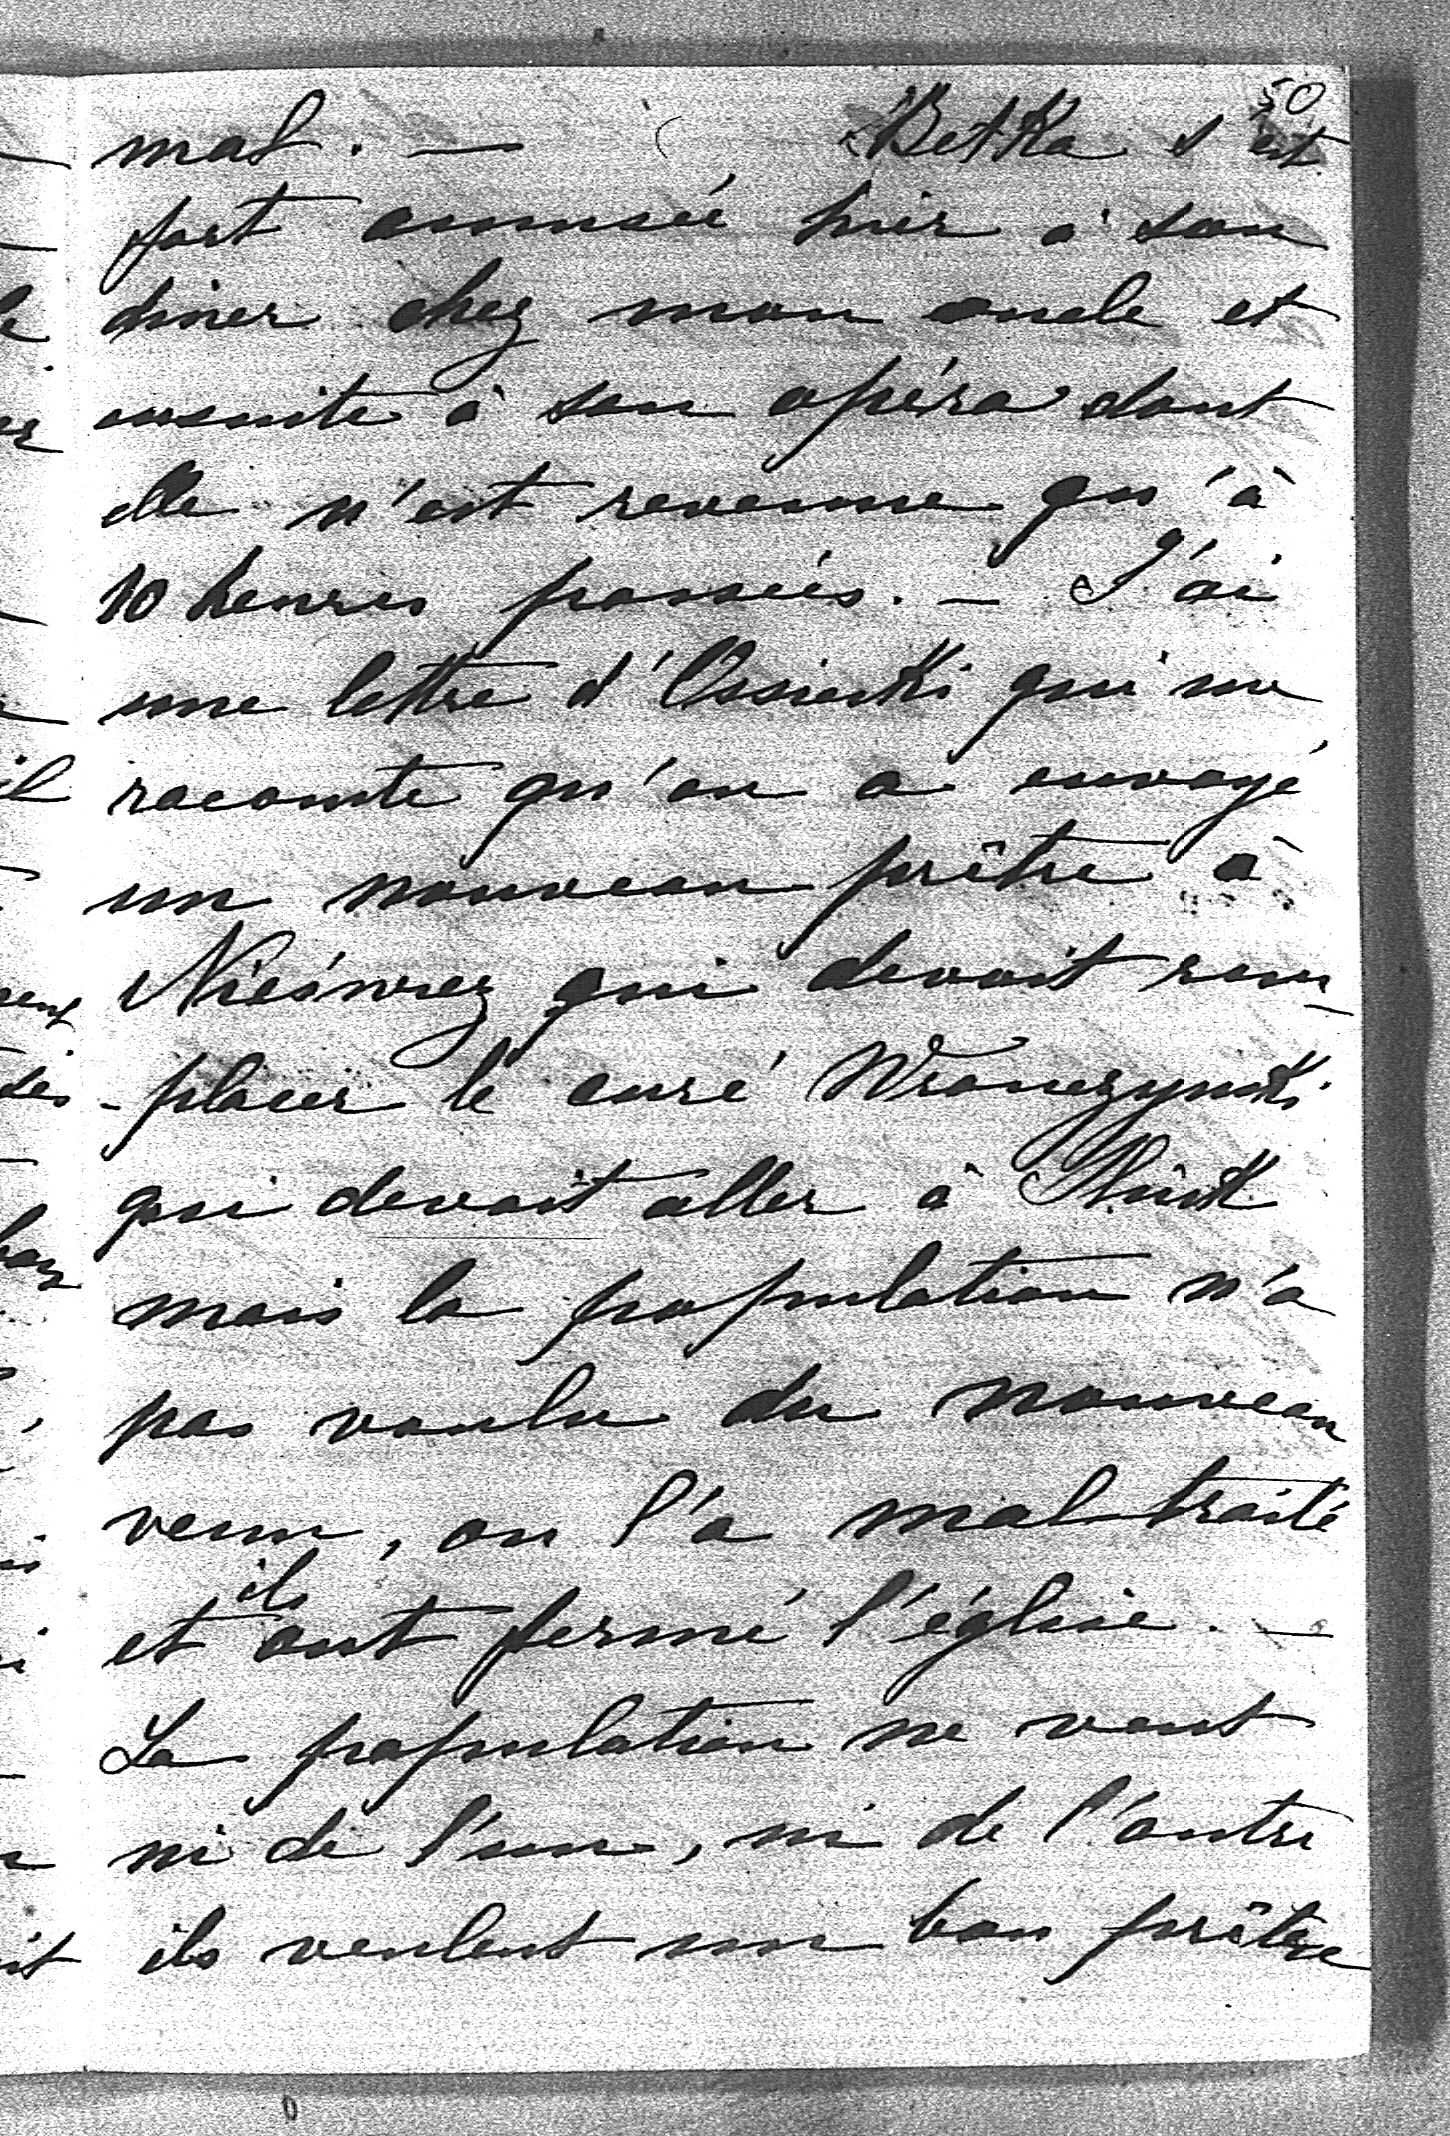 50
mal. — Betka s'est
fort amusée hier à son
diner chez mon oncle et
ensuite à son opéra dont
elle n'est revenue qu'à
10 heures passées. — J'ai
une lettre d'Ossiecki qui me
raconte qu'on a envoyé
un nouveau prêtre à
Nieśwież qui devait rem
- placer le curé Wronczynski
qui devait aller à Sluck
mais la population n'a
pas voulu du nouveau
venu, on l'a maltraité
et ils ont fermé l'église. —
La population ne veut
ni de l'un, ni de l'autre
ils veulent un bon prêtre